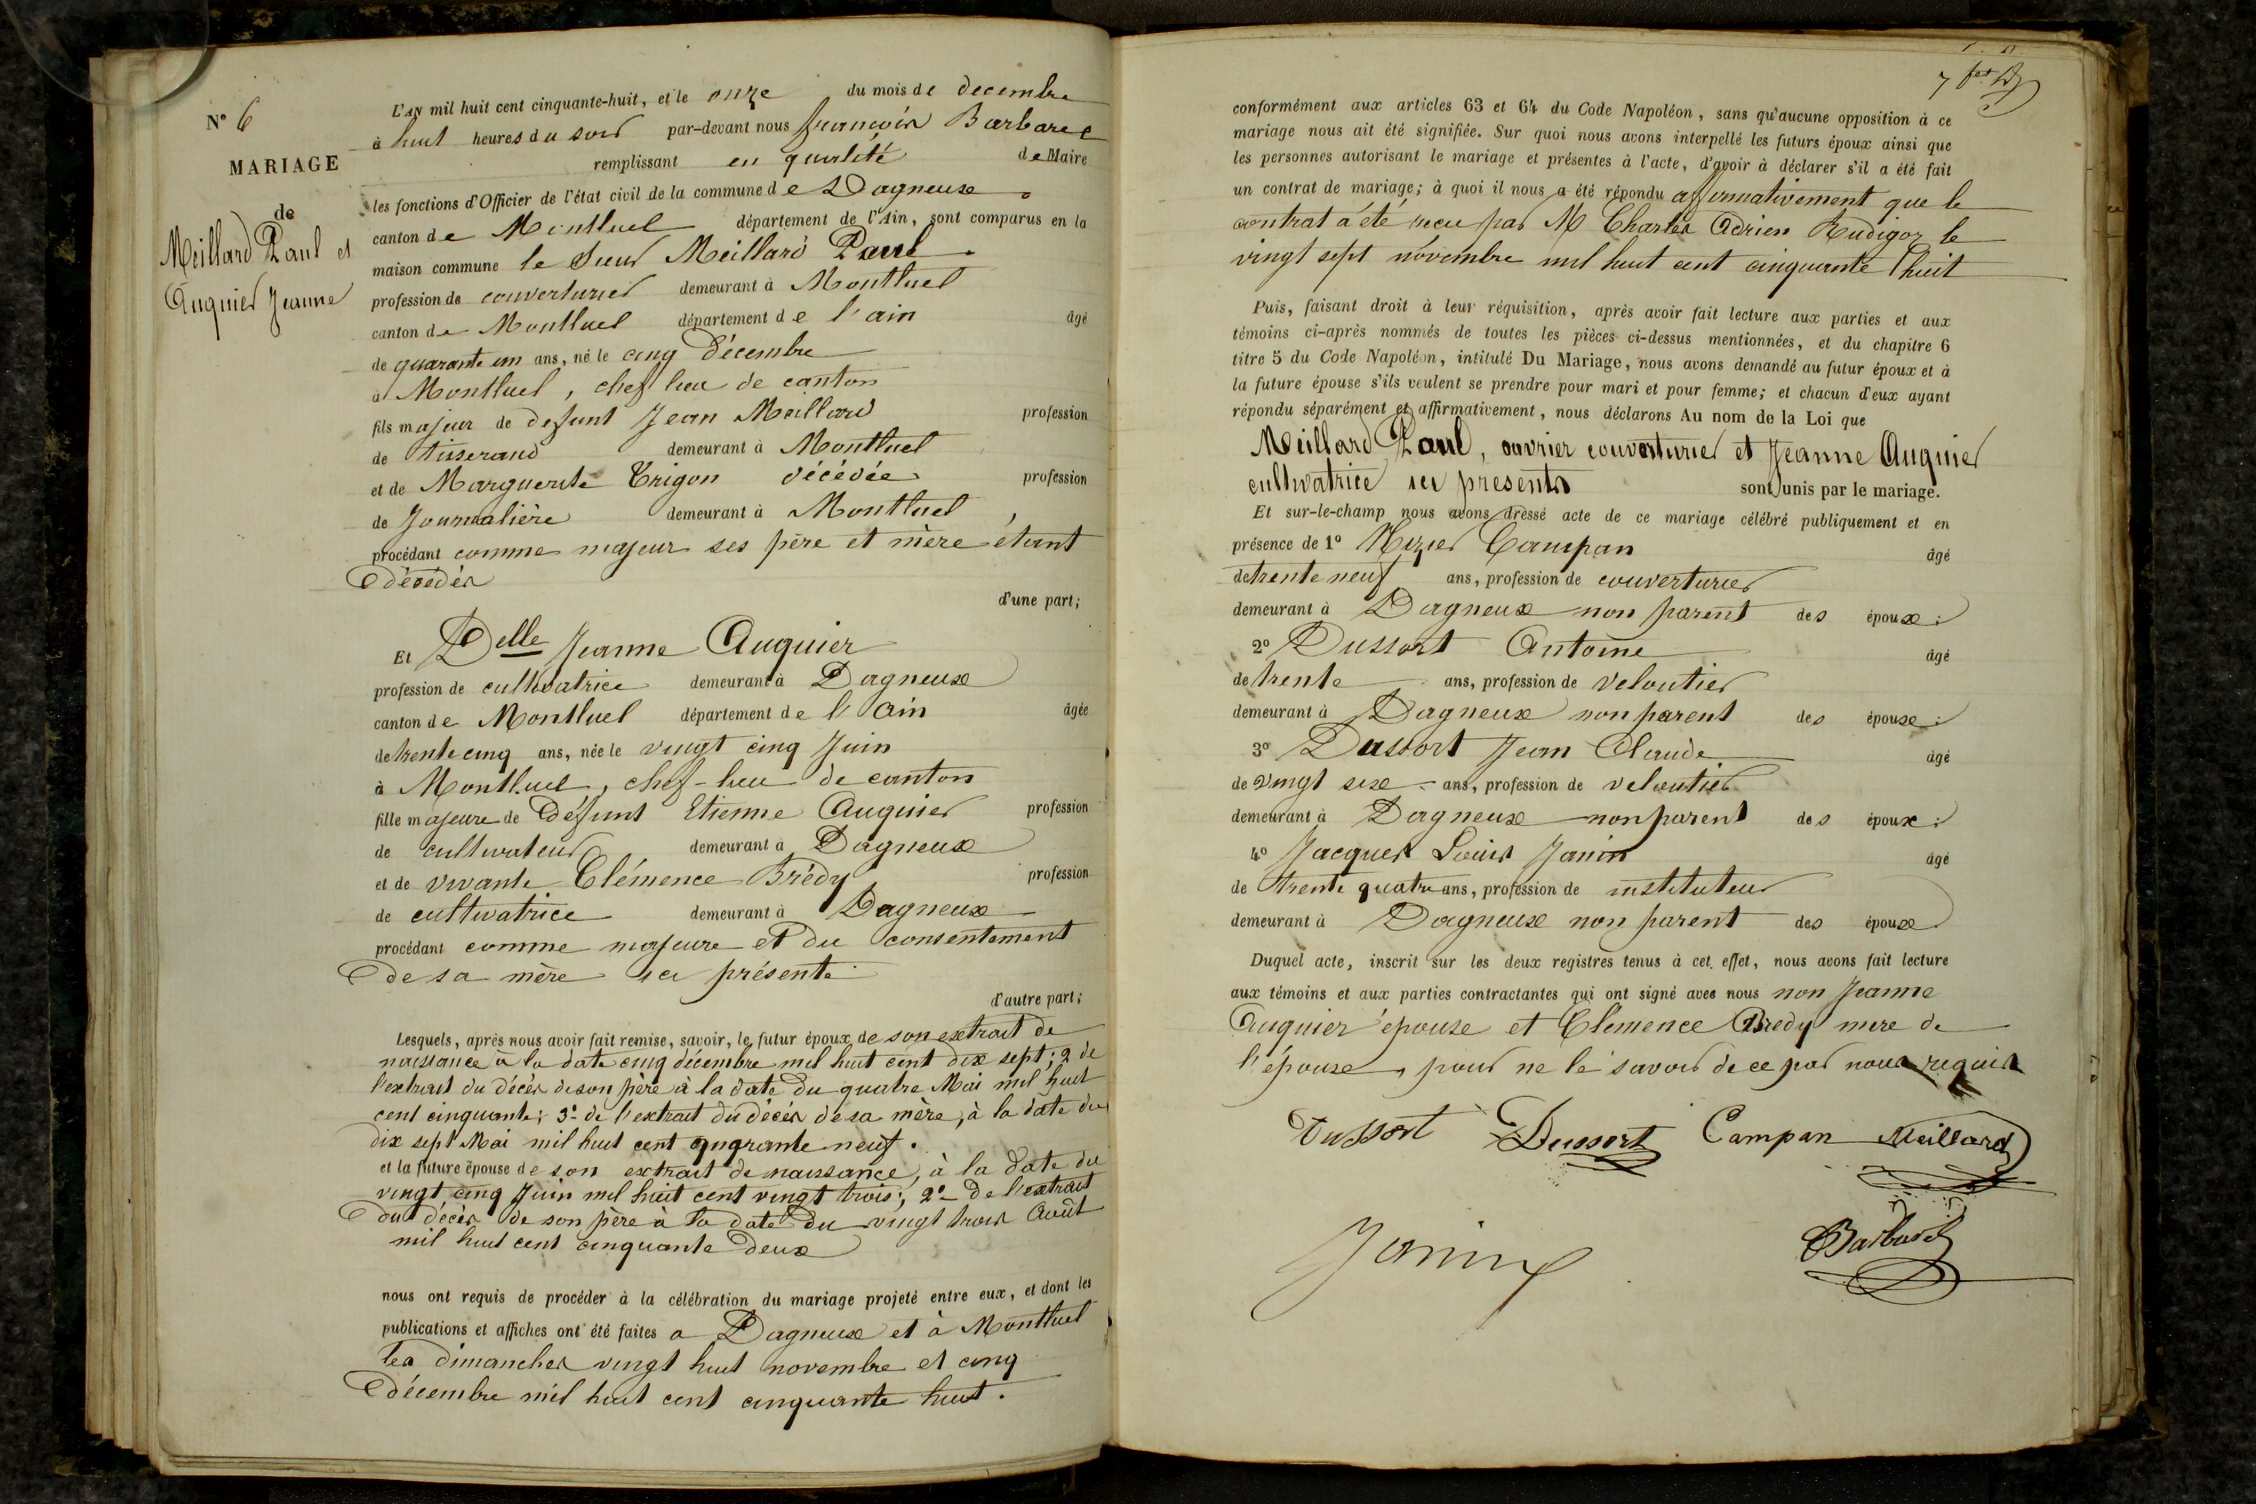 N° 6
MARIAGE
de
Meillard Paul et
Auguier Jeanne
L'AN mil huit cent cinquante-huit, et le onze du mois de decembre
à huit heures du soir par-devant nous françois Barbaret
remplissant en qualité de Maire
les fonctions d'Officier de l'état civil de la commune de Dagneux
canton de Montluel département de l'Ain, sont comparus en la
maison commune le Sieur Meillard Paul
profession de couverturier demeurant à Montluel
canton de Montluel département de l'ain âgé
de quarante un ans, né le cinq Décembre
à Montluel, chef lieu de canton
fils majeur de defunt Jean Meillard profession
de tisserand demeurant à Montluel
et de Marguerite Trigon décédée profession
de Journalière demeurant à Montluel,
procédant comme majeur ses père et mère étant
décédés
d'une part;
Et Delle Jeanne Auguier
profession de cultivatrice demeurant à Dagneux
canton de Montluel département de l'Ain âgée
de trente cinq ans, née le vingt cinq Juin
à Montluel, chef-lieu de canton
fille majeure de Défunt Etienne Auguier profession
de cultivateur demeurant à Dagneux
et de vivante Clémence Brédy profession
de cultivatrice demeurant à Dagneux
procédant comme majeure et du consentement
de sa mère ici présente
d'autre part;
Lesquels, après nous avoir fait remise, savoir, le futur époux de son extrait de
naissance à la date cinq décembre mil huit cent dix sept; 2 de
l'extrait du décès de son père à la date du quatre Mai mil huit
cent cinquante; 3° de l'extrait du décès de sa mère, à la date du
dix sept Mai mil huit cent quarante neuf.
et la future épouse de son extrait de naissance, à la date du
vingt cinq Juin mil huit cent vingt trois; 2° De l'extrait
du décès de son père à la date du vingt trois Août
mil huit cent cinquante deux
nous ont requis de procéder à la célébration du mariage projeté entre eux, et dont les
publications et affiches ont été faites a Dagneux et à Montluel
les dimanches vingt huit novembre et cinq
décembre mil huit cent cinquante huit.
conformément aux articles 63 et 64 du Code Napoléon, sans qu'aucune opposition à ce
mariage nous ait été signifiée. Sur quoi nous avons interpellé les futurs époux ainsi que
les personnes autorisant le mariage et présentes à l'acte, d'avoir à déclarer s'il a été fait
un contrat de mariage; à quoi il nous a été répondu affirmativement que le
contrat a été reçu par M Charles Adrien Rudigoz le
vingt sept novembre mil huit cent cinquante huit
Puis, faisant droit à leur réquisition, après avoir fait lecture aux parties et aux
témoins ci-après nommés de toutes les pièces ci-dessus mentionnées, et du chapitre 6
titre 5 du Code Napoléon, intitulé Du Mariage, nous avons demandé au futur époux et à
la future épouse s'ils veulent se prendre pour mari et pour femme; et chacun d'eux ayant
répondu séparément et affirmativement, nous déclarons Au nom de la Loi que
Meillard Paul, ouvrier couverturier et Jeanne Auguier
cultivatrice ici presents sont unis par le mariage.
Et sur-le-champ nous avons dressé acte de ce mariage célébré publiquement et en
présence de 1° Campan âgé
de trente neuf ans, profession de couverturier
demeurant à Dagneux non parent des époux;
2° Dussort Antoine âgé
de trente ans, profession de veloutier
demeurant à Dagneux non parent des époux;
3° Dussort Jean Claude âgé
de vingt six ans, profession de veloutier
demeurant à Dagneux non parent des époux;
4° Jacques Louis Janin âgé
de trente quatre ans, profession de instituteur
demeurant à Dagneux non parent des époux
Duquel acte, inscrit sur les deux registres tenus à cet effet, nous avons fait lecture
aux témoins et aux parties contractantes qui ont signé avec nous non Jeanne
Auguier épouse et Clemence Bredy mere de
l'épouse, pour ne le savoir de ce par nous requis
Dussort Dussort Campan Meillard
Janin Barbaret